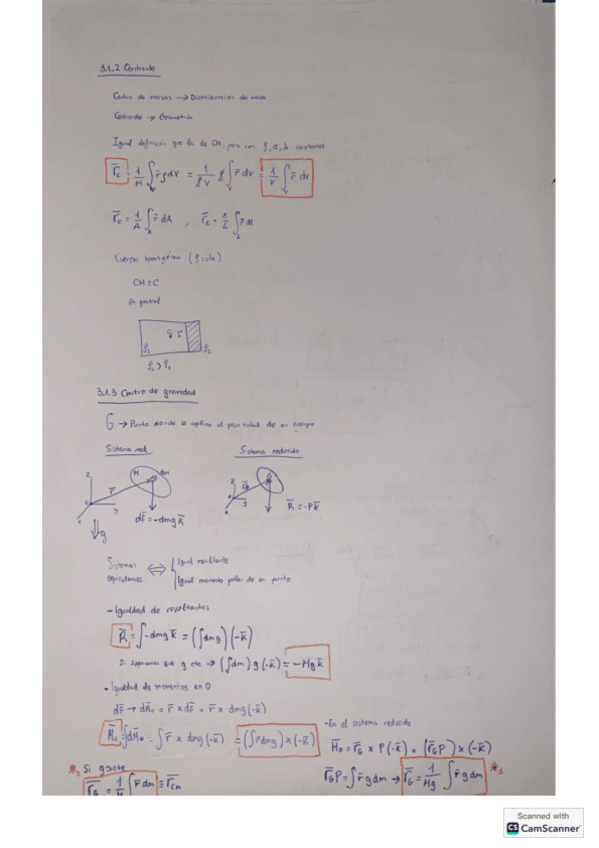 3.1.2 Centroide
Centro de masas → Distribución de masa
Centroide → Geometría
Igual definición que la de CM, pero con ρ, σ, λ constantes
r̄c = 1/M ∫v r̄ρdV = 1/ρV ρ ∫ r̄ dV = 1/V ∫v r̄ dV
r̄c = 1/A ∫A r̄ dA , r̄c = 1/L ∫L r̄ dl
Cuerpos homogéneos (ρ=cte)
CM≡C
En general
3.1.3 Centro de gravedad
G → Punto donde se aplica el peso total de un cuerpo
Sistema real
Sistema reducido
z
M
dm
r̄
y
x
dF̄ = -dmg k̄
g
z
y
x
R̄ = -P k̄
Sistemas equivalentes ⟺ { Igual resultante
Igual momento polar de un punto
- Igualdad de resultantes
R̄ = ∫-dmg k̄ = (∫dmg)(-k̄)
Si suponemos que g cte → (∫dm) g (-k̄) = -Mg k̄
- Igualdad de momentos en O
dF̄ → dM̄o = r̄ × dF̄ = r̄ × dmg (-k̄)
M̄o = ∫dM̄o = ∫ r̄ × dmg (-k̄) = (∫r̄dmg) × (-k̄)
- En el sistema reducido
M̄o = r̄G × P(-k̄) = (r̄G P) × (-k̄)
r̄G P = ∫ r̄ g dm → r̄G = 1/Mg ∫ r̄ g dm
*2 Si g=cte
r̄G = 1/M ∫ r̄ dm ≡ r̄CM
Scanned with
CS CamScanner